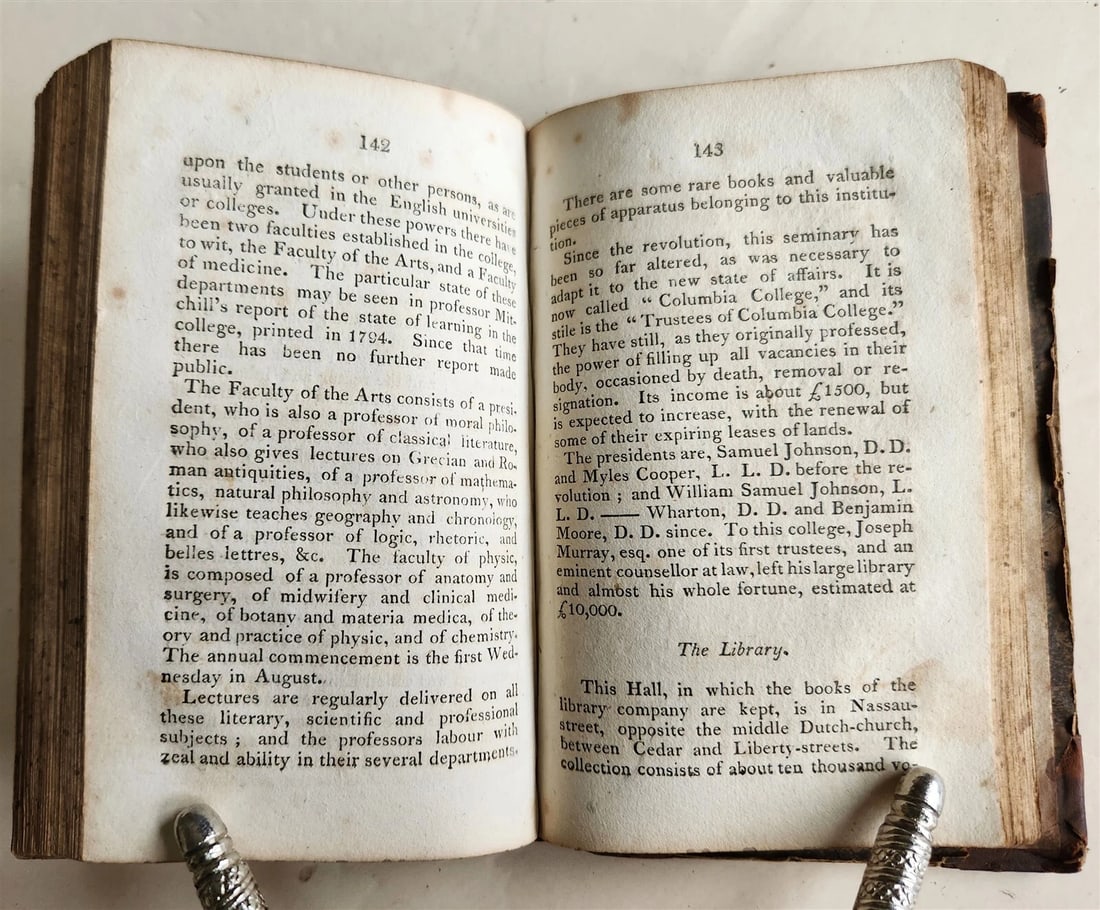 142
upon the students or other persons, as are
usually granted in the English universities
or colleges. Under these powers there have
been two faculties established in the college,
to wit, the Faculty of the Arts, and a Faculty
of medicine. The particular state of these
departments may be seen in professor Mit-
chill's report of the state of learning in the
college, printed in 1794. Since that time
there has been no further report made
public.
The Faculty of the Arts consists of a presi-
dent, who is also a professor of moral philo-
sophy, of a professor of classical literature,
who also gives lectures on Grecian and Ro-
man antiquities, of a professor of mathema-
tics, natural philosophy and astronomy, who
likewise teaches geography and chronology,
and of a professor of logic, rhetoric, and
belles lettres, &c. The faculty of physic,
is composed of a professor of anatomy and
surgery, of midwifery and clinical medi-
cine, of botany and materia medica, of the-
ory and practice of physic, and of chemistry.
The annual commencement is the first Wed-
nesday in August.
Lectures are regularly delivered on all
these literary, scientific and professional
subjects ; and the professors labour with
zeal and ability in their several departments.
143
There are some rare books and valuable
pieces of apparatus belonging to this institu-
tion.
Since the revolution, this seminary has
been so far altered, as was necessary to
adapt it to the new state of affairs. It is
now called “ Columbia College,” and its
stile is the “ Trustees of Columbia College.”
They have still, as they originally professed,
the power of filling up all vacancies in their
body, occasioned by death, removal or re-
signation. Its income is about £1500, but
is expected to increase, with the renewal of
some of their expiring leases of lands.
The presidents are, Samuel Johnson, D. D.
and Myles Cooper, L. L. D. before the re-
volution ; and William Samuel Johnson, L.
L. D. —— Wharton, D. D. and Benjamin
Moore, D. D. since. To this college, Joseph
Murray, esq. one of its first trustees, and an
eminent counsellor at law, left his large library
and almost his whole fortune, estimated at
£10,000.
The Library.
This Hall, in which the books of the
library company are kept, is in Nassau-
street, opposite the middle Dutch-church,
between Cedar and Liberty-streets. The
collection consists of about ten thousand vo-